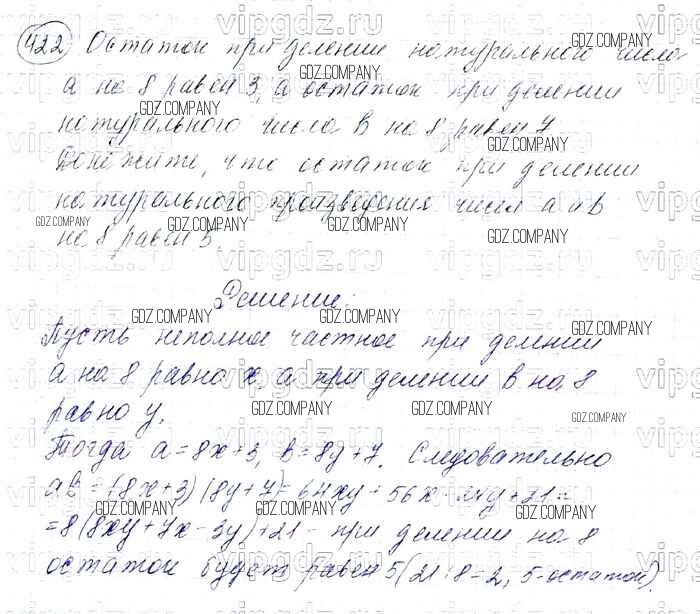 422 Остаток при делении натурального числа
a на 8 равен 3, а остаток при делении
натурального числа в на 8 равен 7.
Докажите, что остаток при делении
натурального произведения чисел а и в
на 8 равен 5
Решение:
Пусть неполное частное при делении
а на 8 равно x, а при делении в на 8
равно y.
Тогда a = 8x+3, в = 8y+7. Следовательно
ав = (8x+3)(8y+7) = 64xy + 56x + 24y + 21 =
= 8(8xy + 7x + 3y) + 21 - при делении на 8
остаток будет равен 5 (21:8=2, 5-остаток).
vipgdz.ru
GDZ.COMPANY